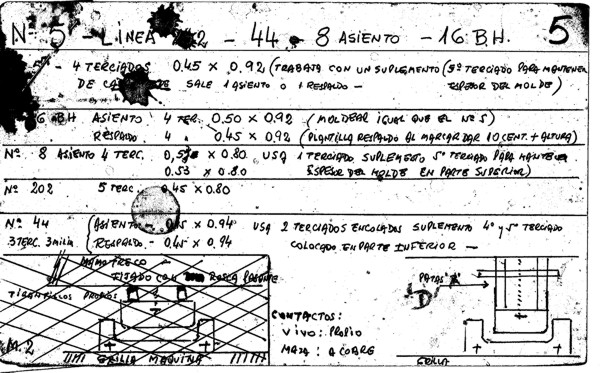 Nº 5 - LÍNEA - 44 - 8 ASIENTO - 16 B.H. 5
- 4 TERCIADOS 0.45 X 0.92 (TRABAJA CON UN SUPLEMENTO (5º TERCIADO PARA MANTENER
DE SALE 1 ASIENTO ó 1 RESPALDO - ESPESOR DEL MOLDE)
6 BH ASIENTO 4 TER. 0.50 X 0.92 (MOLDEAR IGUAL QUE EL Nº 5)
RESPALDO 4 " 0.45 X 0.92 (PLANTILLA RESPALDO AL MARCAR DAR 10 CENT. + ALTURA)
Nº 8 ASIENTO 4 TERC. X 0.80 USA 1 TERCIADO SUPLEMENTO 5º TERCIADO PARA MANTENER
0.53 X 0.80 ESPESOR DEL MOLDE EN PARTE SUPERIOR)
Nº 202 5 TERC. 0.45 X 0.80
Nº 44 (ASIENTO - X 0.94 USA 2 TERCIADOS ENCOLADOS SUPLEMENTO 4º y 5º TERCIADO
3 TERC. 3 mlm. RESPALDO - 0.45 X 0.94 COLOCADO EN PARTE INFERIOR -
MAMOTRECO -
FIJADO CON ROSCA
PROPIOS
PATAS "A"
"D"
CONTACTOS:
VIVO: PROPIO
MASA: A COBRE
M.2
GRILLA MAQUINA
GRILLA